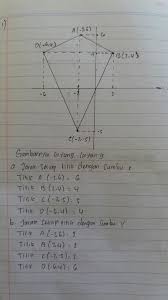 1)
A(-2,6)
D(-6,4)
B(2,4)
C(-2,-5)
-6
2
-5
Gambarnya layang-layang
a. Jarak setiap titik dengan sumbu x
Titik A(-2,6) = 6
Titik B(2,4) = 4
Titik C(-2,-5) = 5
Titik D(-6,4) = 4
b. Jarak setiap titik dengan sumbu Y
Titik A(-2,6) = 2
Titik B(2,4) = 2
Titik C(-2,-5) = 2
Titik D(-6,4) = 6